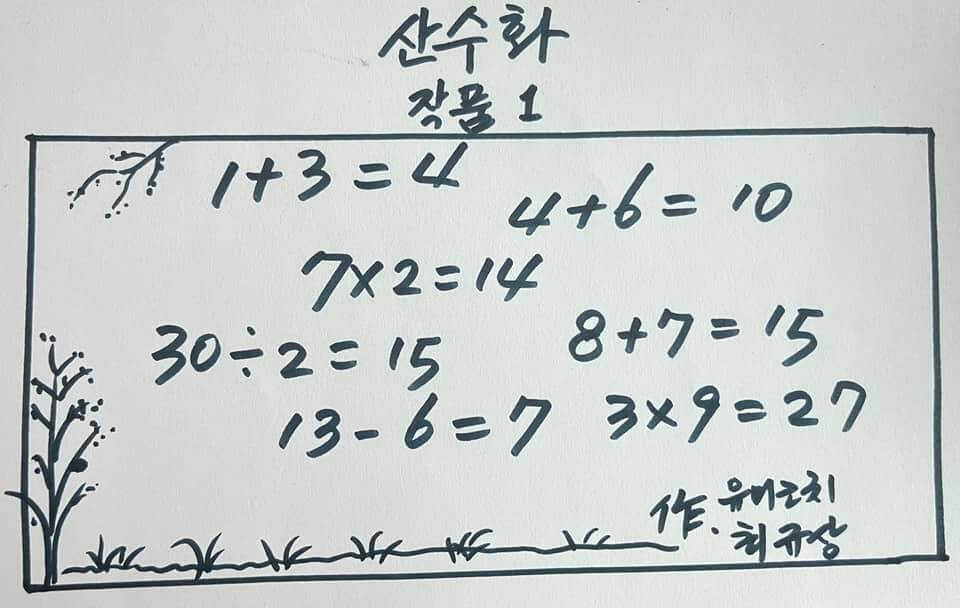 산수화
작품 1
1+3=4
4+6=10
7×2=14
30÷2=15
8+7=15
13-6=7
3×9=27
作. 유머코치
최규상